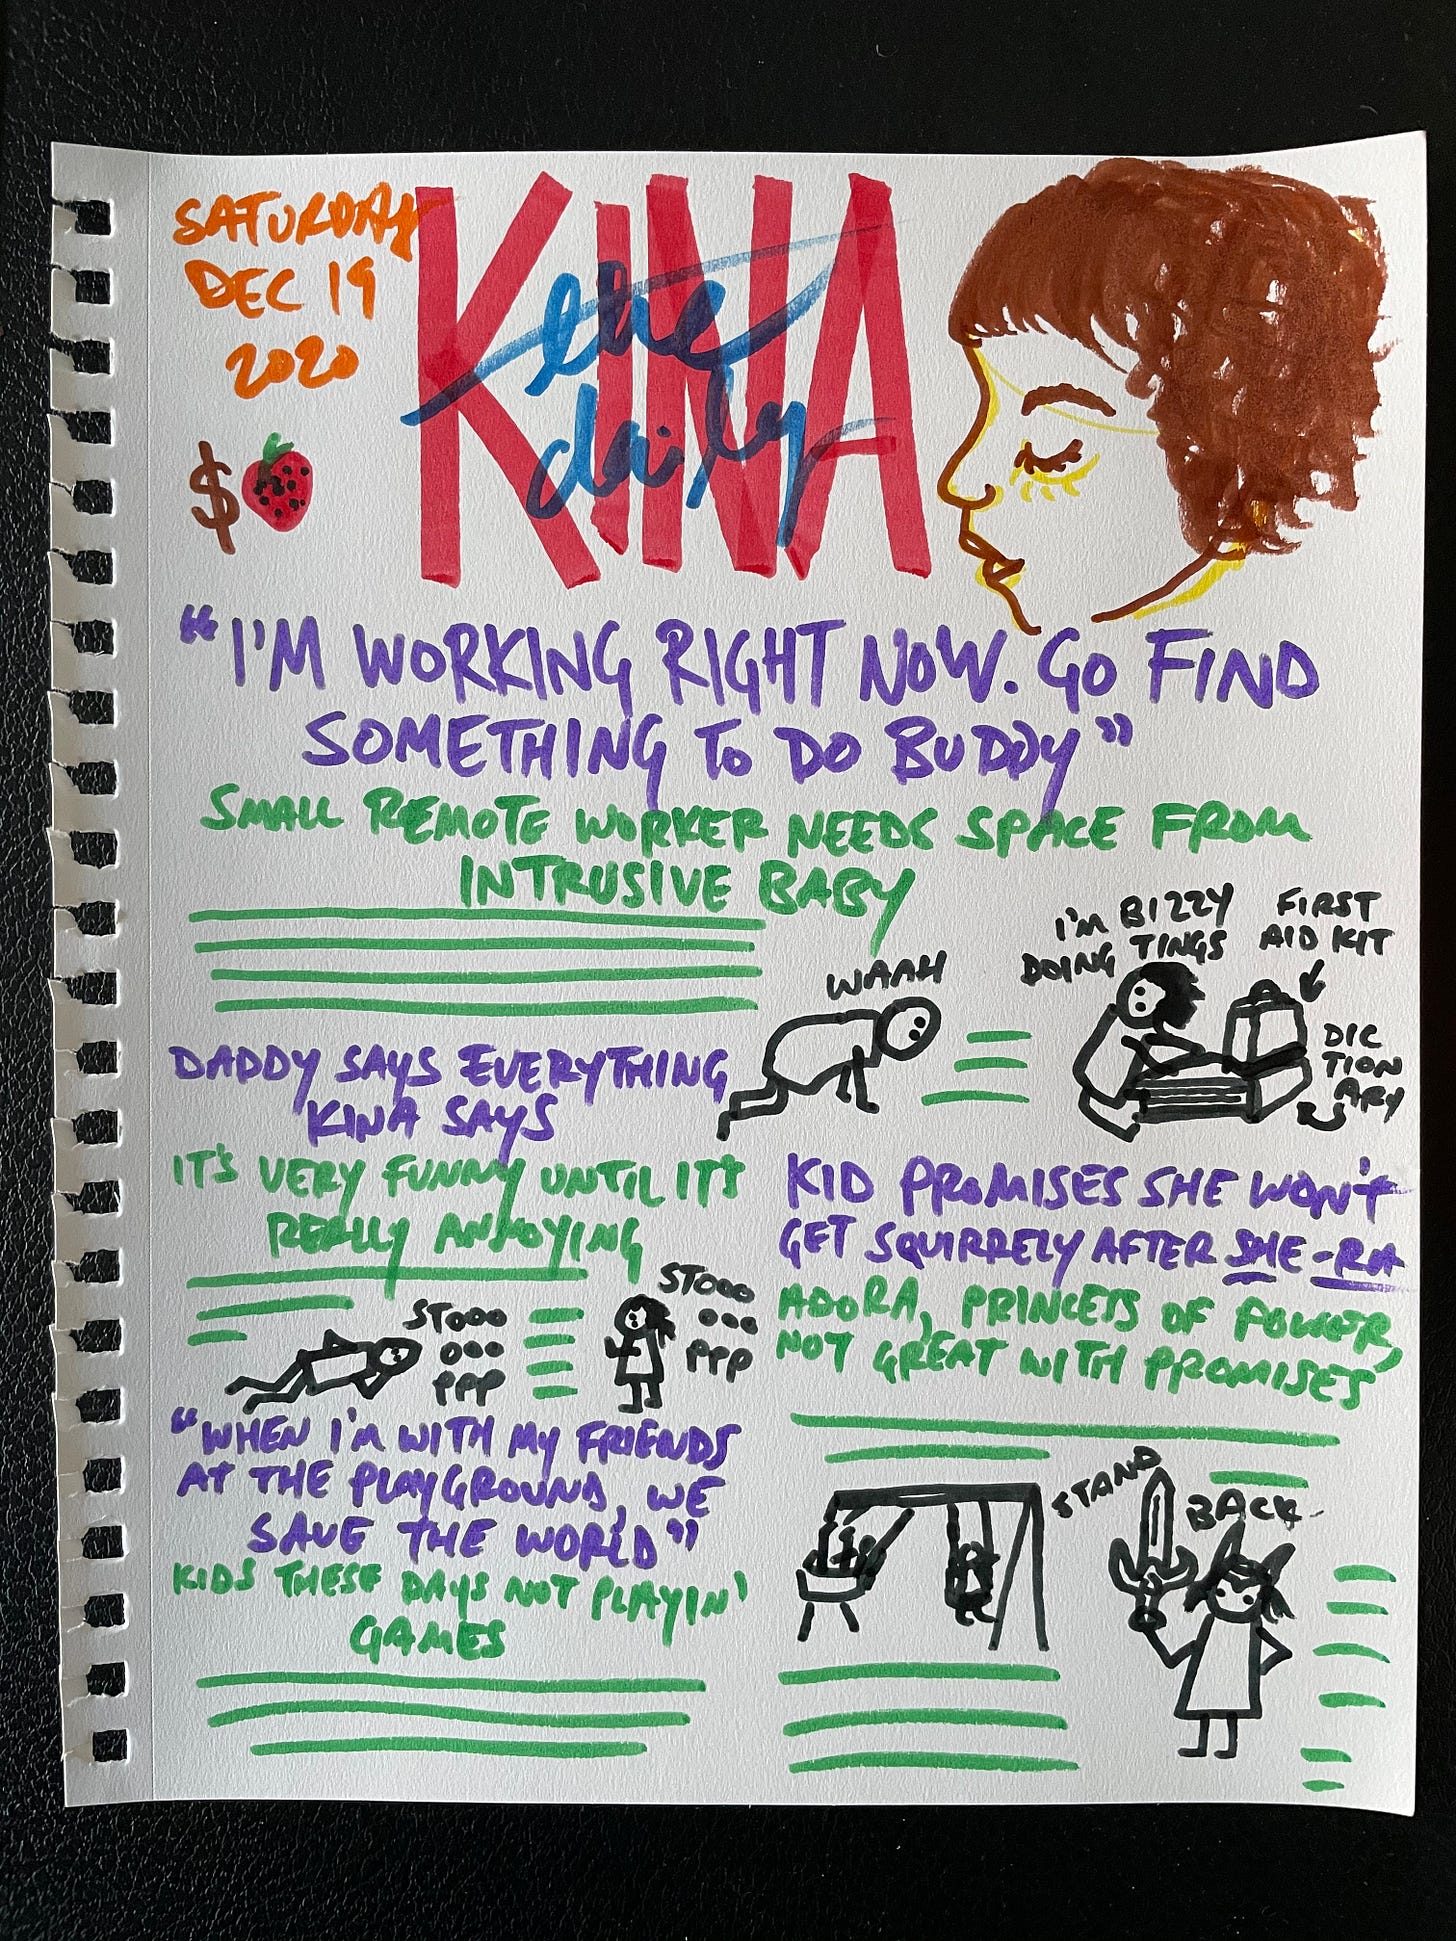 SATURDAY
DEC 19
2020
$
KINA
the
daily
"I'M WORKING RIGHT NOW. GO FIND
SOMETHING TO DO BUDDY"
SMALL REMOTE WORKER NEEDS SPACE FROM
INTRUSIVE BABY
WAAH
I'M BIZZY
DOING TINGS
FIRST
AID KIT
DIC
TION
ARY
DADDY SAYS EVERYTHING
KINA SAYS
IT'S VERY FUNNY UNTIL IT'S
REALLY ANNOYING
STOOO
OOO
PPP
STOOO
OOO
PPP
KID PROMISES SHE WON'T
GET SQUIRRELY AFTER SHE-RA
ADORA, PRINCESS OF POWER,
NOT GREAT WITH PROMISES
"WHEN I'M WITH MY FRIENDS
AT THE PLAYGROUND, WE
SAVE THE WORLD"
KIDS THESE DAYS NOT PLAYIN'
GAMES
STAND
BACK